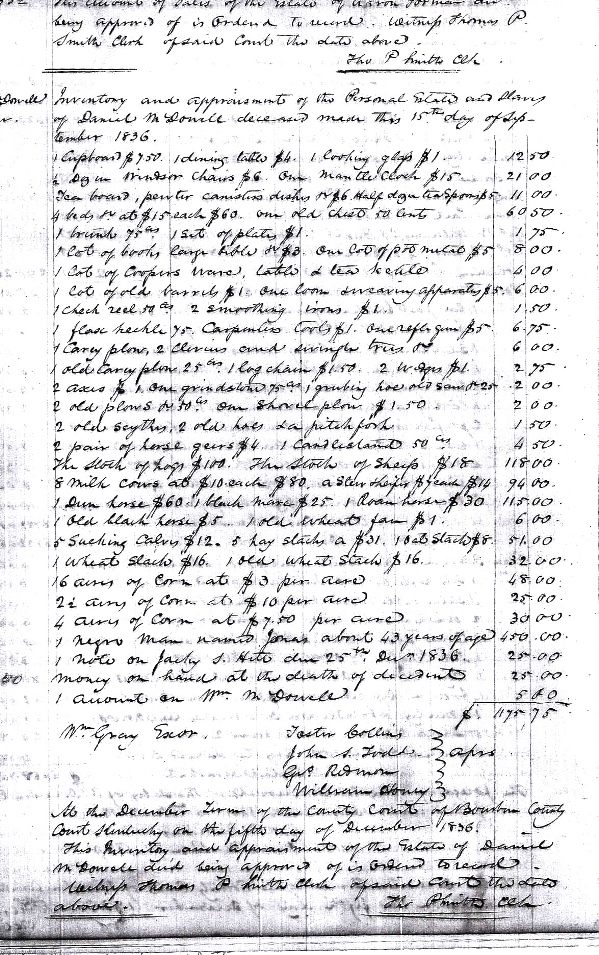 This Account of Sales of the Estate of Aaron Forman decd
being approved of is Ordered to record. Witness Thomas P.
Smith Clerk of said Court the date above.
Tho P Smith Clk
McDowell
Inventory and appraisment of the Personal Estate and Slaves
of Daniel McDowell deceased made this 15th day of Sep-
tember 1836.
1 Cupboard $7.50. 1 dining table $4. 1 looking glass $1. 12 50
½ Dozen Windsor Chairs $6. One Mantle Clock $15. 21 00
Tea board, pewter canisters dishes &c $6 Half dozen tea spoons $5 11 00
4 beds &c at $15 each $60. one old chest 50 Cent 60 50
1 trunk 75 cts 1 Set of plates $1. 1 75
1 lot of books large bible &c $3. One lot of pot metal $5 8 00
1 lot of Coopers Ware, table & tea kettle 4 00
1 lot of old barrels $1. One loom & weaving apparatus $5. 6 00
1 check reel 50 cts 2 Smoothing irons $1. 1.50
1 flax heckle 75. Carpenters Tools $1. One rifle gun $5. 6.75
1 Carey plow, 2 Clevises and swingle trees &c 6 00
1 old Carey plow 25 cts. 1 log chain $1.50. 2 Wedges $1. 2 75
2 axes $1. One grindstone 75 cts 1 grubing hoe old Saw &c 25 2 00
2 old plows &c 50 cts One Shovel plow $1.50 2 00
2 old Scythes, 2 old hoes & a pitchfork 1.50
2 pair of horse geers $4. 1 Candlestand 50 cts 4 50
The Stock of hogs $100. The Stock of Sheep $18 118 00
8 Milk Cows at $10 each $80. a Steer & heifer $7 each $14 94 00
1 Dun horse $60. 1 black Mare $25. 1 Roan horse $30 115.00
1 Old black horse $5. 1 old Wheat fan $1. 6 00
5 Sucking Calves $12. 5 hay stacks a $31. 1 oat Stack $8. 51.00
1 Wheat Stack $16. 1 Old Wheat Stack $16. 32 00
16 acres of Corn at $3 per acre 48.00
2½ acres of Corn at $10 per acre 25 00
4 acres of Corn at $7.50 per acre 30 00
1 Negro Man named Jonas about 43 years of age 450.00
1 Note on Jacky S. Hite due 25th Decr 1836. 25.00
Money on hand at the deaths of decedent 25.00
50
1 account on Wm McDowell 5 00
$ 1175,75
Wm Gray Exeor.
Foster Collins
John S. Todd
Aprs
Geo Redmon
William Honey
At the December Term of the County Court of Bourbon County
Court Kentucky on the fifth day of December 1836.
This Inventory and appraisment of the Estate of Daniel
McDowell decd being approved of is Ordered to record.
Witness Thomas P Smith Clerk of said Court the date
above.
Tho P Smith Clk.